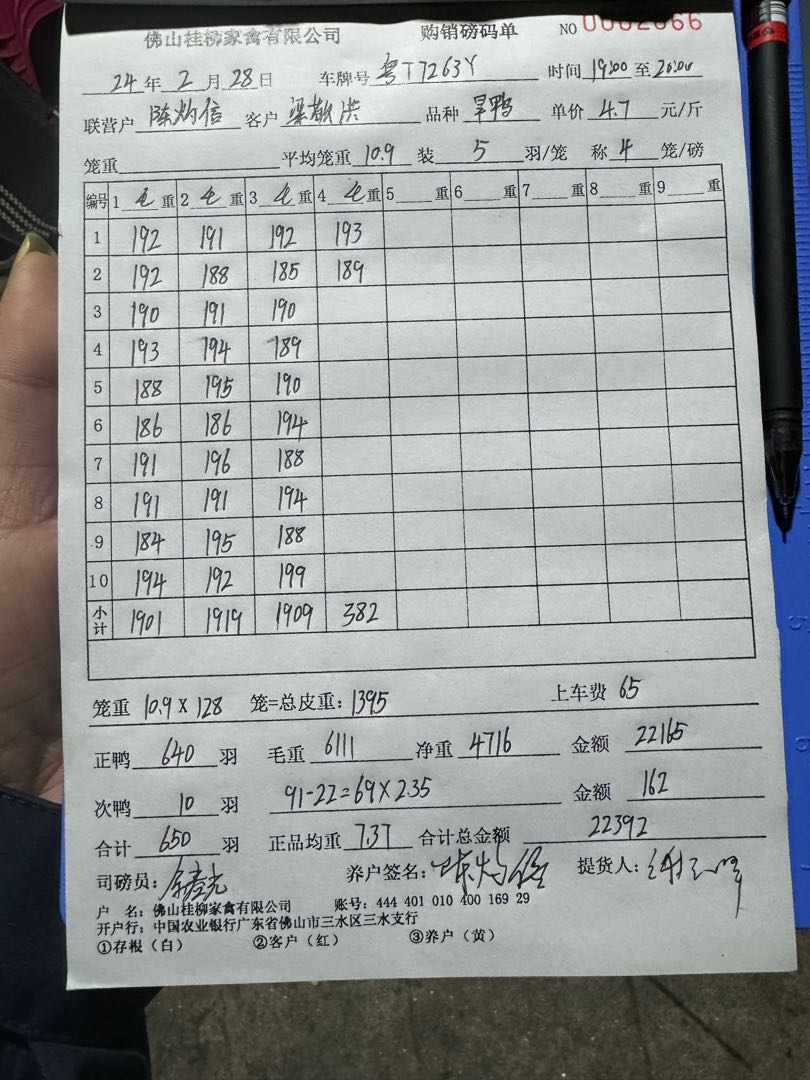 佛山桂柳家禽有限公司 购销磅码单 NO 0002666
24 年 2 月 28 日 车牌号 粤T7263Y 时间 19:00 至 20:00
联营户 陈灼信 客户 梁敬洪 品种 旱鸭 单价 4.7 元/斤
笼重 平均笼重 10.9 装 5 羽/笼 称 4 笼/磅
编号 1 毛 重 2 毛 重 3 毛 重 4 毛 重 5 重 6 重 7 重 8 重 9 重
1 192 191 192 193
2 192 188 185 189
3 190 191 190
4 193 194 189
5 188 195 190
6 186 186 194
7 191 196 188
8 191 191 194
9 184 195 188
10 194 192 199
小计 1901 1919 1909 382
笼重 10.9 X 128 笼=总皮重: 1395 上车费 65
正鸭 640 羽 毛重 6111 净重 4716 金额 22165
次鸭 10 羽 91-22=69X2.35 金额 162
合计 650 羽 正品均重 7.37 合计总金额 22392
司磅员: 养户签名: 陈灼信 提货人:
户 名: 佛山桂柳家禽有限公司 账号: 444 401 010 400 169 29
开户行: 中国农业银行广东省佛山市三水区三水支行
①存根(白) ②客户(红) ③养户(黄)